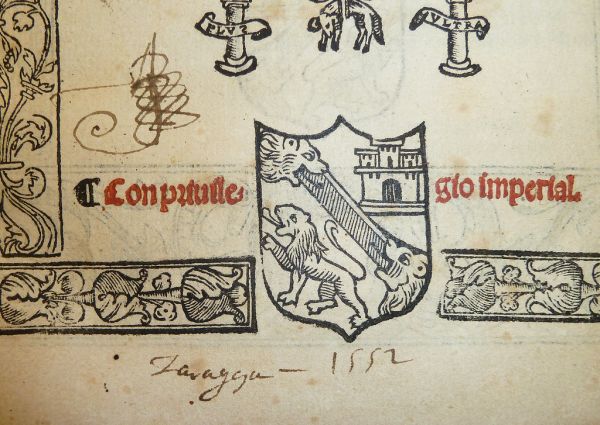 PLVS VLTRA
¶ Con priuile gio imperial.
Zaragoza — 1552